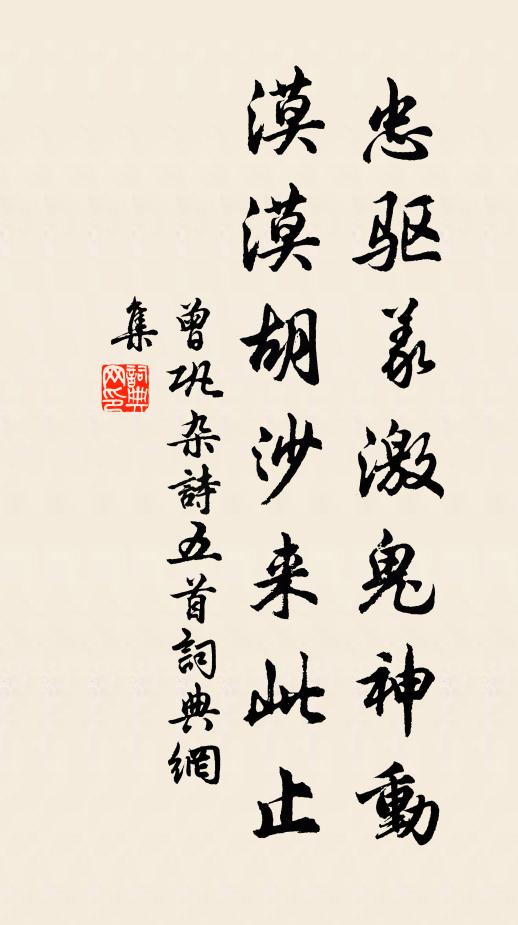 忠驱义激鬼神動
漠漠胡沙来此止
曾巩杂詩五首詞典網
集
詞典网印